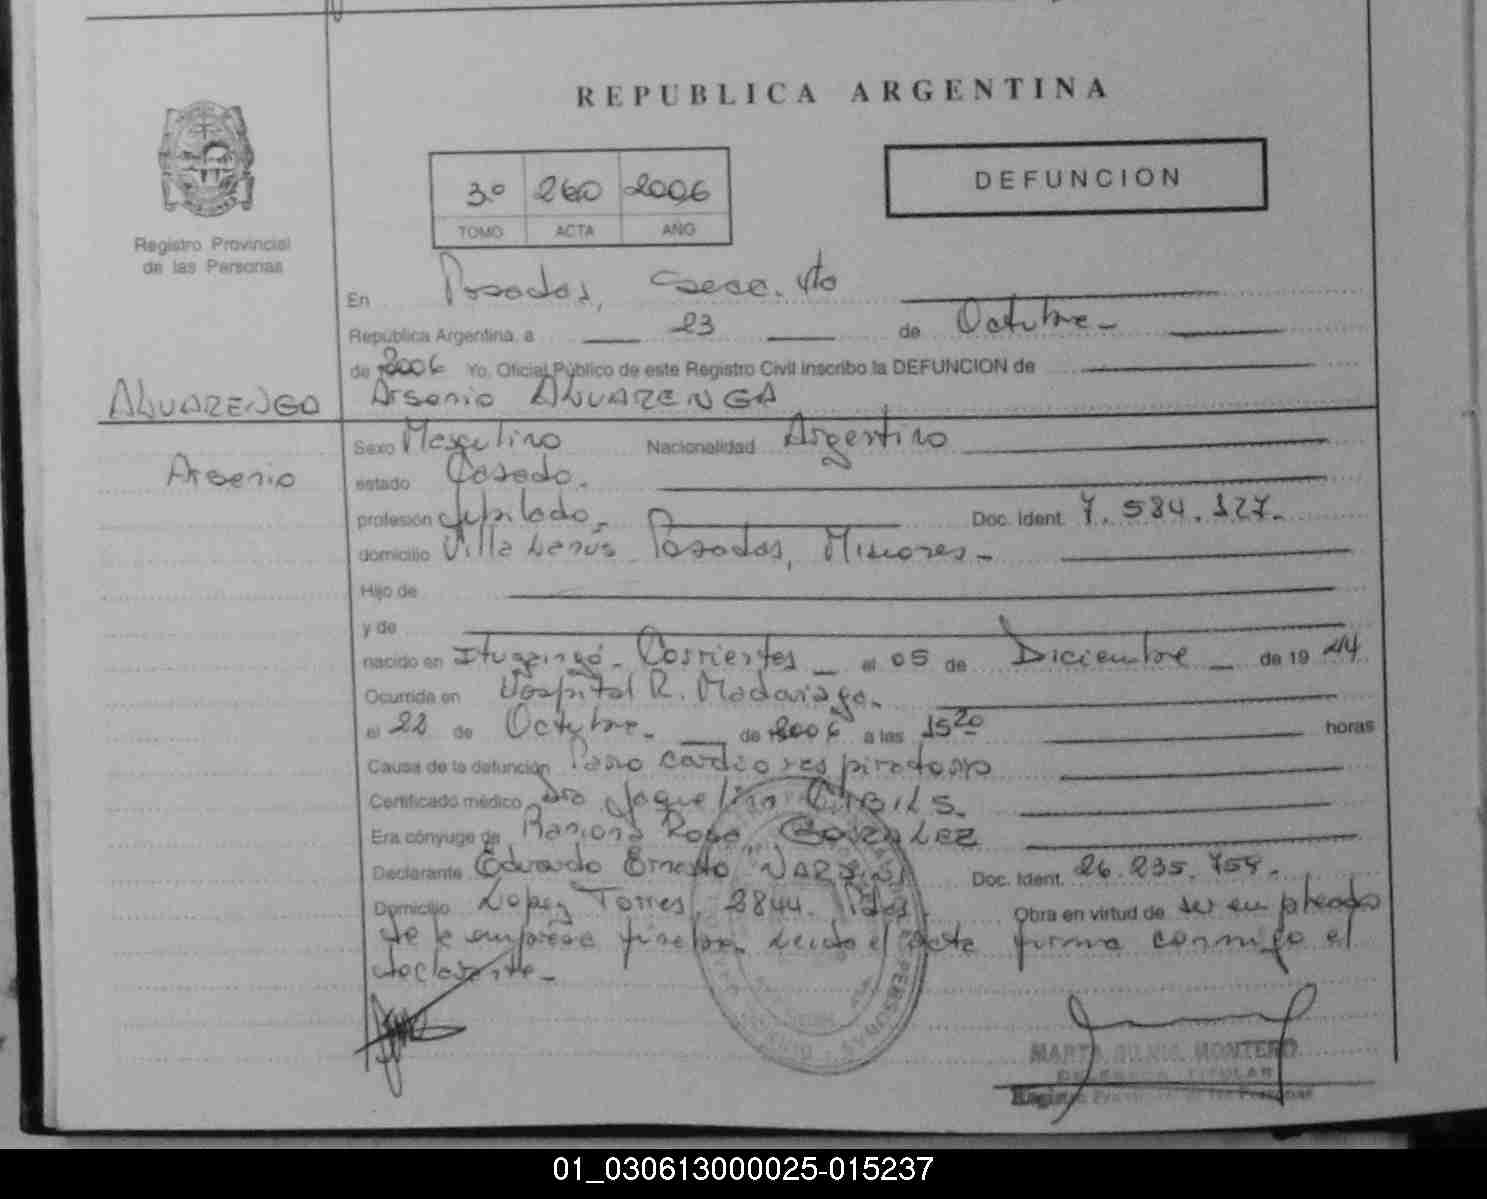 REPUBLICA ARGENTINA
3º 260 2006
TOMO ACTA AÑO
DEFUNCION
Registro Provincial
de las Personas
En Posadas, Secc. 4to
República Argentina, a 23 de Octubre
de 2006 Yo, Oficial Público de este Registro Civil inscribo la DEFUNCION de
ALVARENGA Arsenio ALVARENGA
Arsenio
Sexo Masculino Nacionalidad Argentino
estado Casado.
profesión Jubilado, Doc. Ident. 7.584.127.
domicilio Villa Lanús Posadas, Misiones
Hijo de
y de
nacido en Ituzaingó - Corrientes el 05 de Diciembre de 19 44
Ocurrida en Hospital R. Madariaga.
el 22 de Octubre. de 2006 a las 15 20 horas
Causa de la defunción Paro cardiorespiratorio
Certificado médico Dra Jaquelina
Era cónyuge de Ramona Rosa GONZALEZ
Declarante Eduardo Ernesto Doc. Ident. 26.235.759.
Domicilio Lopez Torres, 2844. Pdas. Obra en virtud de ser empleado
de la empresa funebre. Leida el Acta firma conmigo el
declarante.
MARTA SILVIA MONTERO
TITULAR
01_030613000025-015237